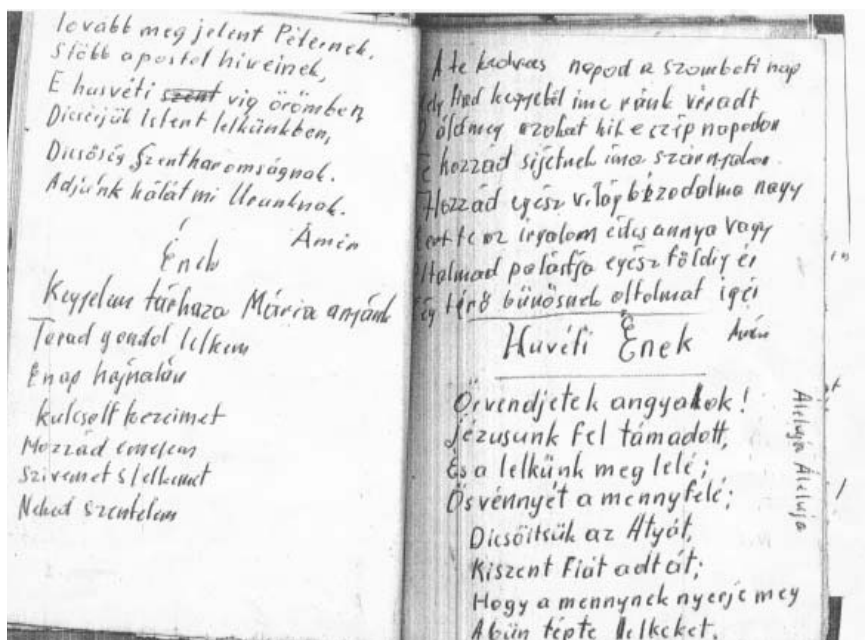 Tovább meg jelent Péternek.
S több apostol hiveinek,
E husvéti szent vig örömben
Dicsérjük Istent lelkünkben,
Dicsőség Szentháromságnak.
Adjunk hálát mi Urunknak.
Ámén
Ének
Kegyelem tárháza Mária anyánk
Terad gondol lelkem
E nap hajnalán
kulcsolt kezeimet
Hozzád emelem
Szivemet s lelkemet
Neked szentelem
A te kedves napod a szombati nap
Hozzád egész világ bizodalma nagy
mert te az irgalom édes annya vagy
egész földig ér
térő bűnösnek oltalmat igér
Ámén
Huvéti Ének
Örvendjetek angyalok!
Jézusunk fel támadott,
És a lelkünk meg lelé;
Ösvénnyét a mennyfelé;
Dicsőitsük az Atyát,
Kiszent Fiát adt át;
Hogy a mennynek nyerje meg
A bün tépte lelkeket.
Áleluja Áleluja